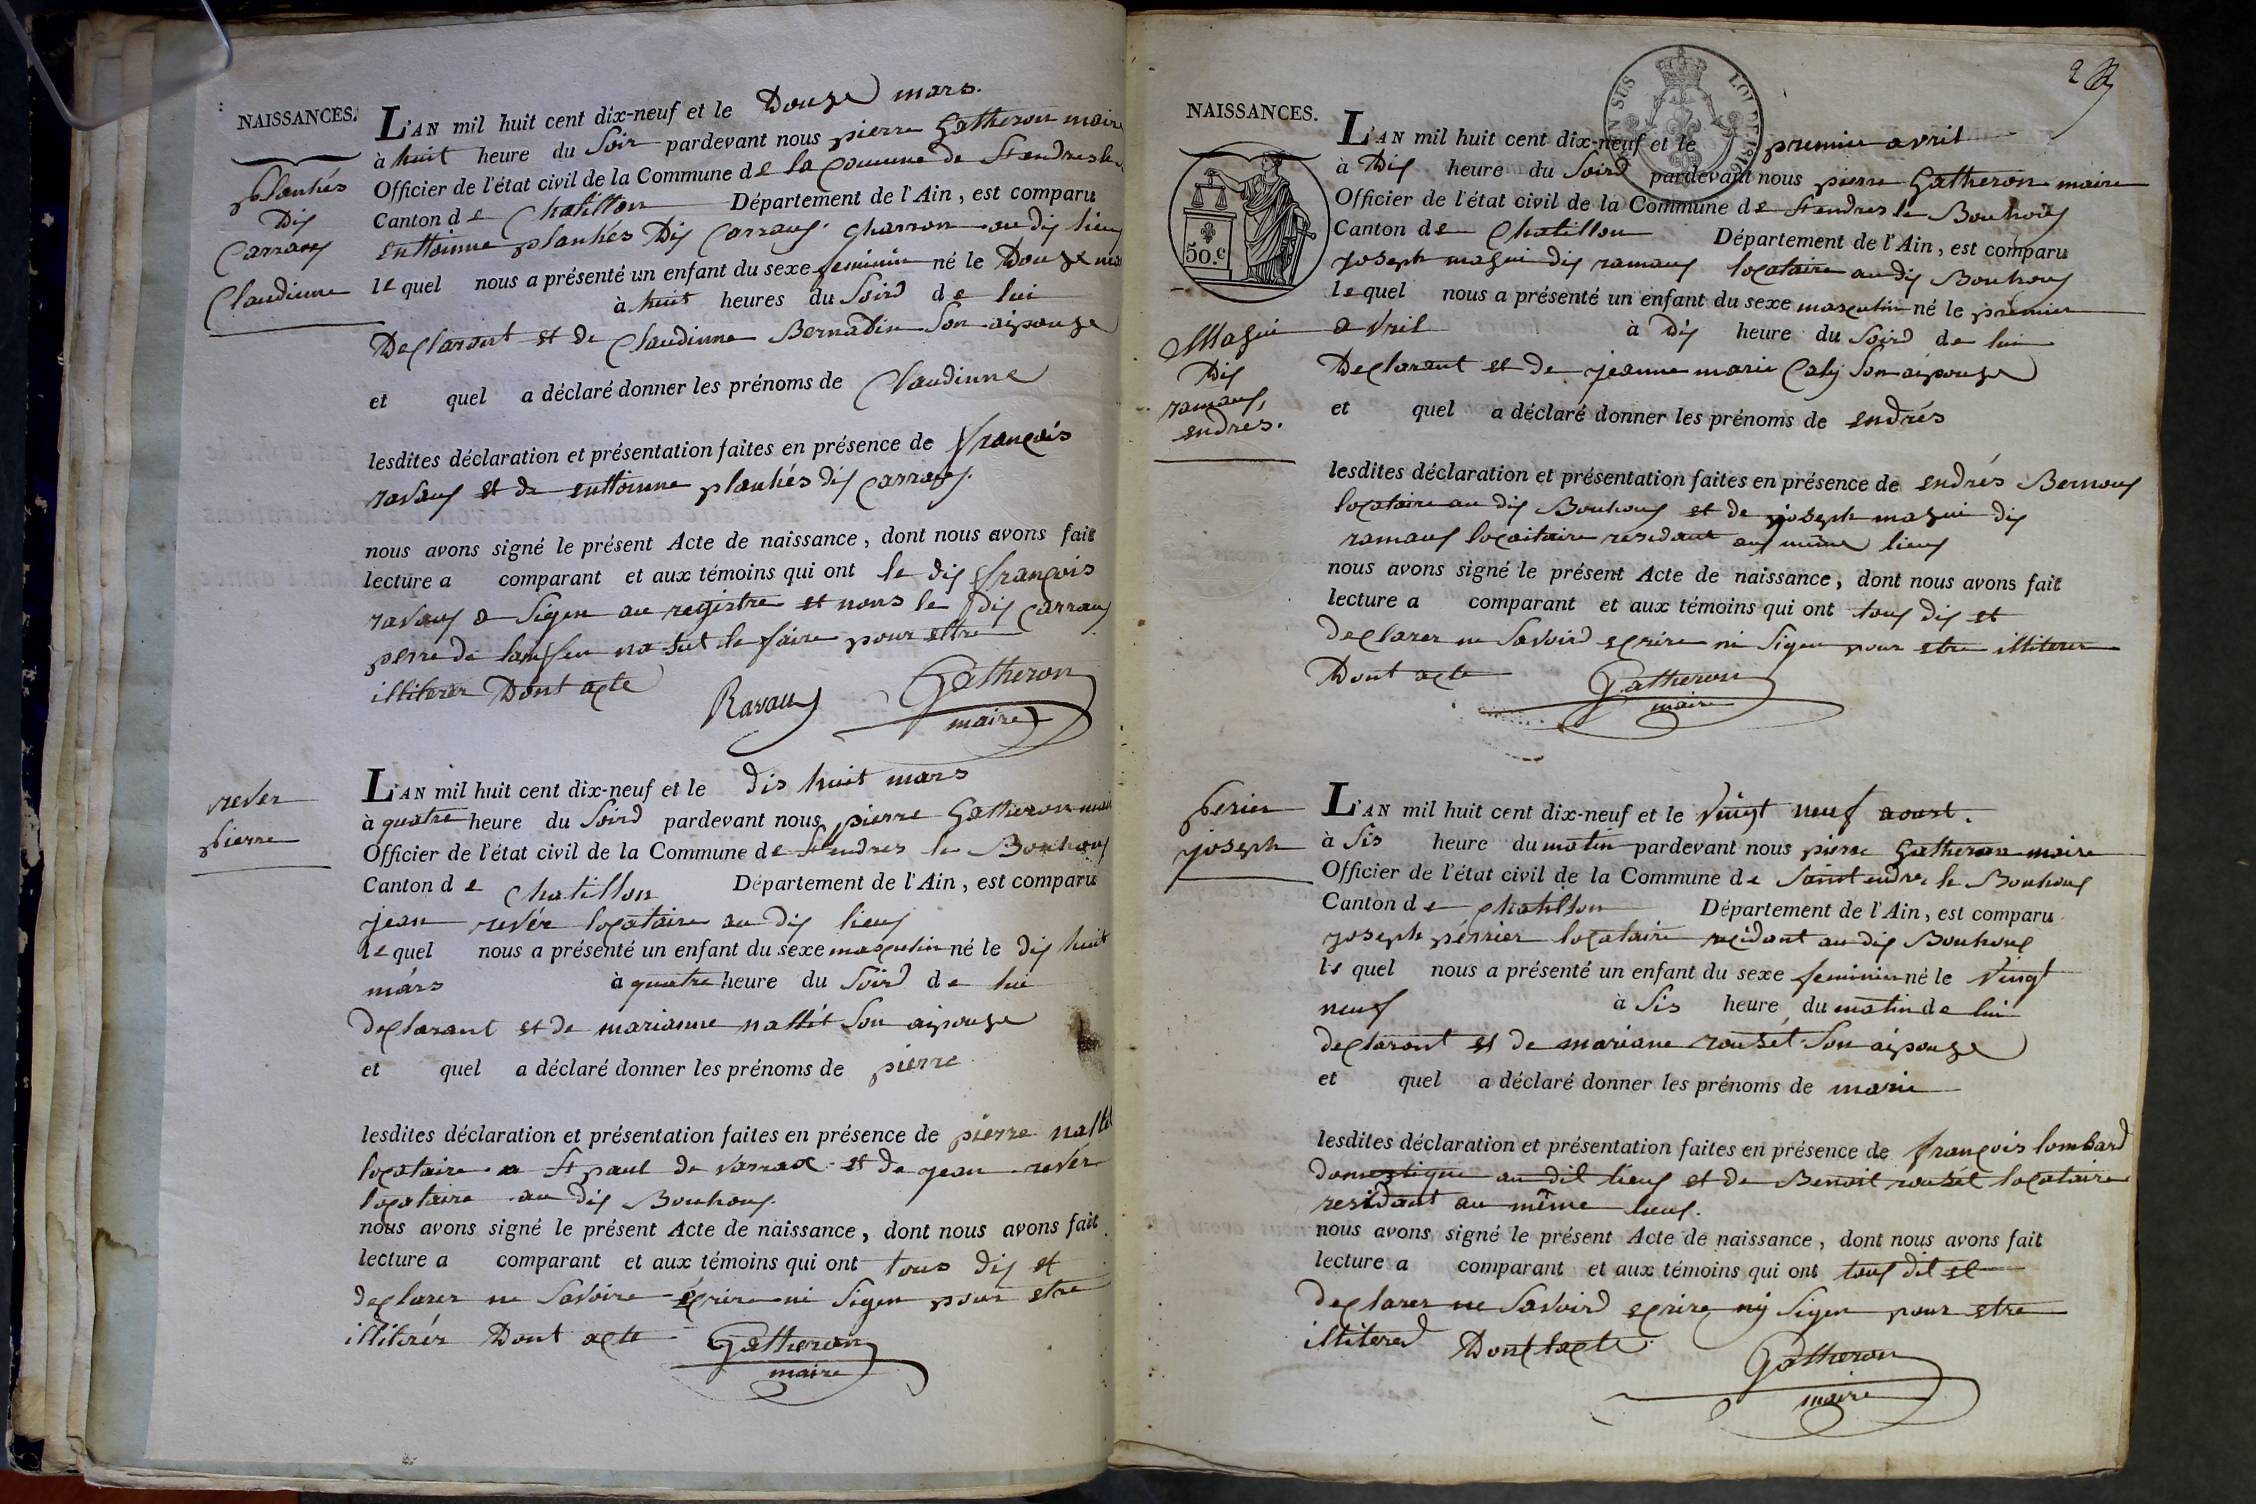 NAISSANCES.
plantiés
Dis
Carraux
Claudinne
L'AN mil huit cent dix-neuf et le Douze mars.
à huit heure du Soir pardevant nous pierre Gatheron maire
Officier de l'état civil de la Commune de la Commune de St endres le
Canton de Chatillon Département de l'Ain, est comparu
enttoinne plantiés Dis Carraux charron au dis lieux
le quel nous a présenté un enfant du sexe feminin né le Douze
à huit heures du Soird de lui
Declarant et de Claudinne Bernadin Son aipouze
et quel a déclaré donner les prénoms de Claudinne
lesdites déclaration et présentation faites en présence de françois
ravaux et de enttoinne plantiés dis Carraux.
nous avons signé le présent Acte de naissance, dont nous avons fait
lecture a comparant et aux témoins qui ont le dis françois
ravaux a Signe au registre et nons le dis Carraux
perre de lanfen na Sut le faire pour ettre
illiterer Dont acte
Ravaux Gatheron
maire
rever
pierre
L'AN mil huit cent dix-neuf et le dis huit mars
à quatre heure du Soird pardevant nous pierre Gatheron
Officier de l'état civil de la Commune de St endres le Bouhoux
Canton de Chatillon Département de l'Ain, est comparu
jean revér locataire au dis lieux
le quel nous a présenté un enfant du sexe masculin né le dis huit
márs à quatre heure du Soird de lui
declarant et de marianne nallét Son aipouze
et quel a déclaré donner les prénoms de pierre
lesdites déclaration et présentation faites en présence de pierre
locataire a St paul de varax et de jean revér
locataire au dis Bouhoux.
nous avons signé le présent Acte de naissance, dont nous avons fait
lecture a comparant et aux témoins qui ont tous dis et
declarer ne Savoire écrire ni Signer pour etre
illitérér Dont acte Gatheron
maire
2
NAISSANCES.
50.c
Mazui
Dis
ramaux,
endres.
L'AN mil huit cent dix-neuf et le premier avril
à Dis heure du Soird pardevant nous pierre Gatheron maire
Officier de l'état civil de la Commune de St endres le Bouhoux
Canton de Chatillon Département de l'Ain, est comparu
joseph mazui dis ramaux locataire au dis Bouhoux
le quel nous a présenté un enfant du sexe masculin né le premier
avril à Dis heure du Soird de lui
Declarant et de jeanne marie Caly Son aipouze
et quel a déclaré donner les prénoms de endrés
lesdites déclaration et présentation faites en présence de endrés Bernoux
locataire au dis Bouhoux et de joseph mazui dis
ramaux locaitaire residant au même lieux
nous avons signé le présent Acte de naissance, dont nous avons fait
lecture a comparant et aux témoins qui ont tous dis et
declarer ne Savoird ecrire ni Signer pour etre illiterer
Dont acte Gatheron
maire
perier
joseph
L'AN mil huit cent dix-neuf et le Vingt neuf aoust.
à Sis heure du matin pardevant nous pierre Gatheron maire
Officier de l'état civil de la Commune de Saint endre le Bouhoux
Canton de Chatillon Département de l'Ain, est comparu
joseph périrer locataire residant au dis Bouhoux
le quel nous a présenté un enfant du sexe feminin né le Vingt
neuf à Sis heure du matin de lui
declarant et de mariane rousét Son aipouze
et quel a déclaré donner les prénoms de marie
lesdites déclaration et présentation faites en présence de françois lombard
domestique au dit lieux et de Benoit rousét locataire
residant au même lieux.
nous avons signé le présent Acte de naissance, dont nous avons fait
lecture a comparant et aux témoins qui ont tous dit et
declarer ne Savoird ecrire ny Signer pour etre
illitered Dont lacte
Gatheron
maire